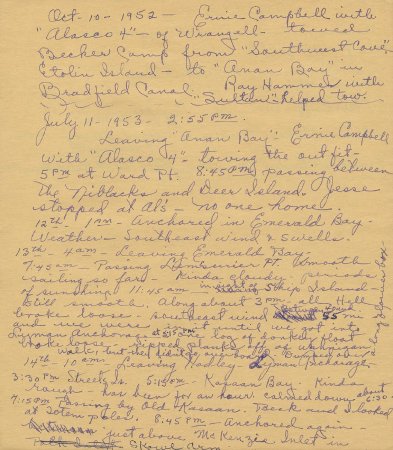 Oct-10-1952- Ernie Campbell with
"Alasco 4"- of Wrangell- towed
Becker Camp from "Southwest Cove"-
Etolin Island- to "Anan Bay" in
Bradfield Canal. Ray Hammer with
"Sultan" helped tow.
July 11-1953- 2:55 PM.
Leaving "Anan Bay". Ernie Campbell
With "Alasco 4"- towing the outfit-
5 PM at Ward Pt. 8:45 PM, passing between
the Niblacks and Deer Island. Jesse
stopped at Al's- no one home.
12th- 1 PM- Anchored in Emerald Bay-
Weather- Southeast wind & swells.
13th- 4 AM- Leaving Emerald Bay-
7:45 AM- Passing Lemesurier Pt. Smooth
sailing so far- Kinda cloudy- periods
of sunshine. 11:45 AM Ship Island-
Still smooth. Along about 3 PM all Hell
broke loose- Southeast wind 55 mi
and we were until we got into
Lyman anchorage at log of bunkhouse float
broke loose. slipped planks off of
walk, but she didn't go overboard. "Dumped over"
14th- 10 AM- Leaving Hadley Lyman Anchorage-
3:30 PM Streets Is. 5:15 PM- Kasaan Bay- Kinda
rough- has been for an hour. calmed down about 6:30-
7:15 PM Passing by Old Kasaan. Took and I looked
at Totem poles. 8:45 PM- Anchored again-
just above McKenzie Inlet in
Skowl Arm